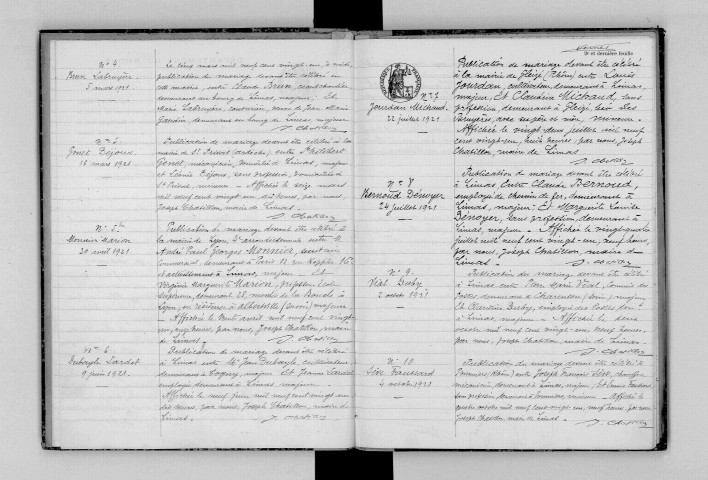 N° 4
Brun Labruyère
5 mars 1921
Le cinq mars mil neuf cent vingt-un, à midi,
publication de mariage devant être célébré en
cette mairie, entre Claude Brun,
demeurant au bourg de Limas, majeur, et
Marie Labruyère, couturière, veuve de Jean Marie
demeurant au bourg de Limas, majeure
J. Chatillon
N° 5
Genet Béjoud
16 mars 1921
Publication de mariage devant être célébré à la
mairie de St Priest (Ardèche), entre
Genet, mécanicien, domicilié à Limas, majeur
et Léonie Béjoud, sans profession, domiciliée à
St Priest, mineure - Affichée le seize mars
mil neuf cent vingt-un, dix heures, par nous,
Joseph Chatillon, maire de Limas.
J. Chatillon
N° 5bis
Monnier Marion
20 avril 1921
Publication de mariage devant être célébré à
la mairie de Lyon, 4e arrondissement entre M
André Paul Georges Monnier,
commercial, demeurant à Paris 12 rue Keppler 16e
et actuellement à Limas, majeur Et
Virginie Marguerite Marion, professeur École
Supérieure, demeurant 28, montée de la Boucle à
Lyon, en résidence à Albertville (Savoie) majeure
- Affichée le vingt avril mil neuf cent vingt-
un, heures, par nous, Joseph Chatillon, maire
de Limas.
J. Chatillon
N° 6
Debayle Lardet
9 juin 1921
Publication de mariage devant être célébré
à Limas entre M. Jean Debayle cultivateur
demeurant à Cogny, majeur Et Jeanne Lardet
employée demeurant à Limas majeure
Affichée le neuf juin mil neuf cent vingt-un
dix heures, par nous Joseph Chatillon, maire de
Limas.
J. Chatillon
2e et dernière feuille
N° 7
Jourdan Michaud
22 juillet 1921
Publication de mariage devant être célébré
à la mairie de Gleizé (Rhône) entre Louis
Jourdan, cultivateur, demeurant à Limas,
majeur, Et Claudia Michaud, sans
profession, demeurant à Gleizé, lieu des
Bruyères, avec ses père et mère, mineure.
Affichée le vingt-deux juillet mil neuf
cent vingt-un, huit heures, par nous, Joseph
Chatillon, maire de Limas
J. Chatillon
N° 8
Bernoud Dénoyer
24 juillet 1921
Publication de mariage devant être célébré
à Limas entre Claude Bernoud,
employé de chemin de fer, demeurant à
Limas, majeur Et Marguerite Louise
Dénoyer, sans profession, demeurant à
Limas, majeure - Affichée le vingt-quatre
juillet mil neuf cent vingt-un, neuf heures,
par nous, Joseph Chatillon maire de
Limas -
J. Chatillon
N° 9
Vial Derby
2 octobre 1921
Publication de mariage devant être célébré
à Limas entre Jean Marie Vial, commis des
Postes, demeurant à Charenton (Seine), majeur
Et Célestine Derby, employée des Postes
à Limas, majeure - Affichée le deux
octobre mil neuf cent vingt-un, neuf heures,
par nous, Joseph Chatillon, maire de Limas
J. Chatillon
N° 10
4 octobre 1921
Publication de mariage devant être célébré à
Pommiers (Rhône) entre Joseph François
mécanicien, demeurant à Limas, majeur, Et
sans profession demeurant à Pommiers, mineure - Affichée le
quatre octobre mil neuf cent vingt-un, neuf heures, par nous
Joseph Chatillon, maire de Limas -
J. Chatillon